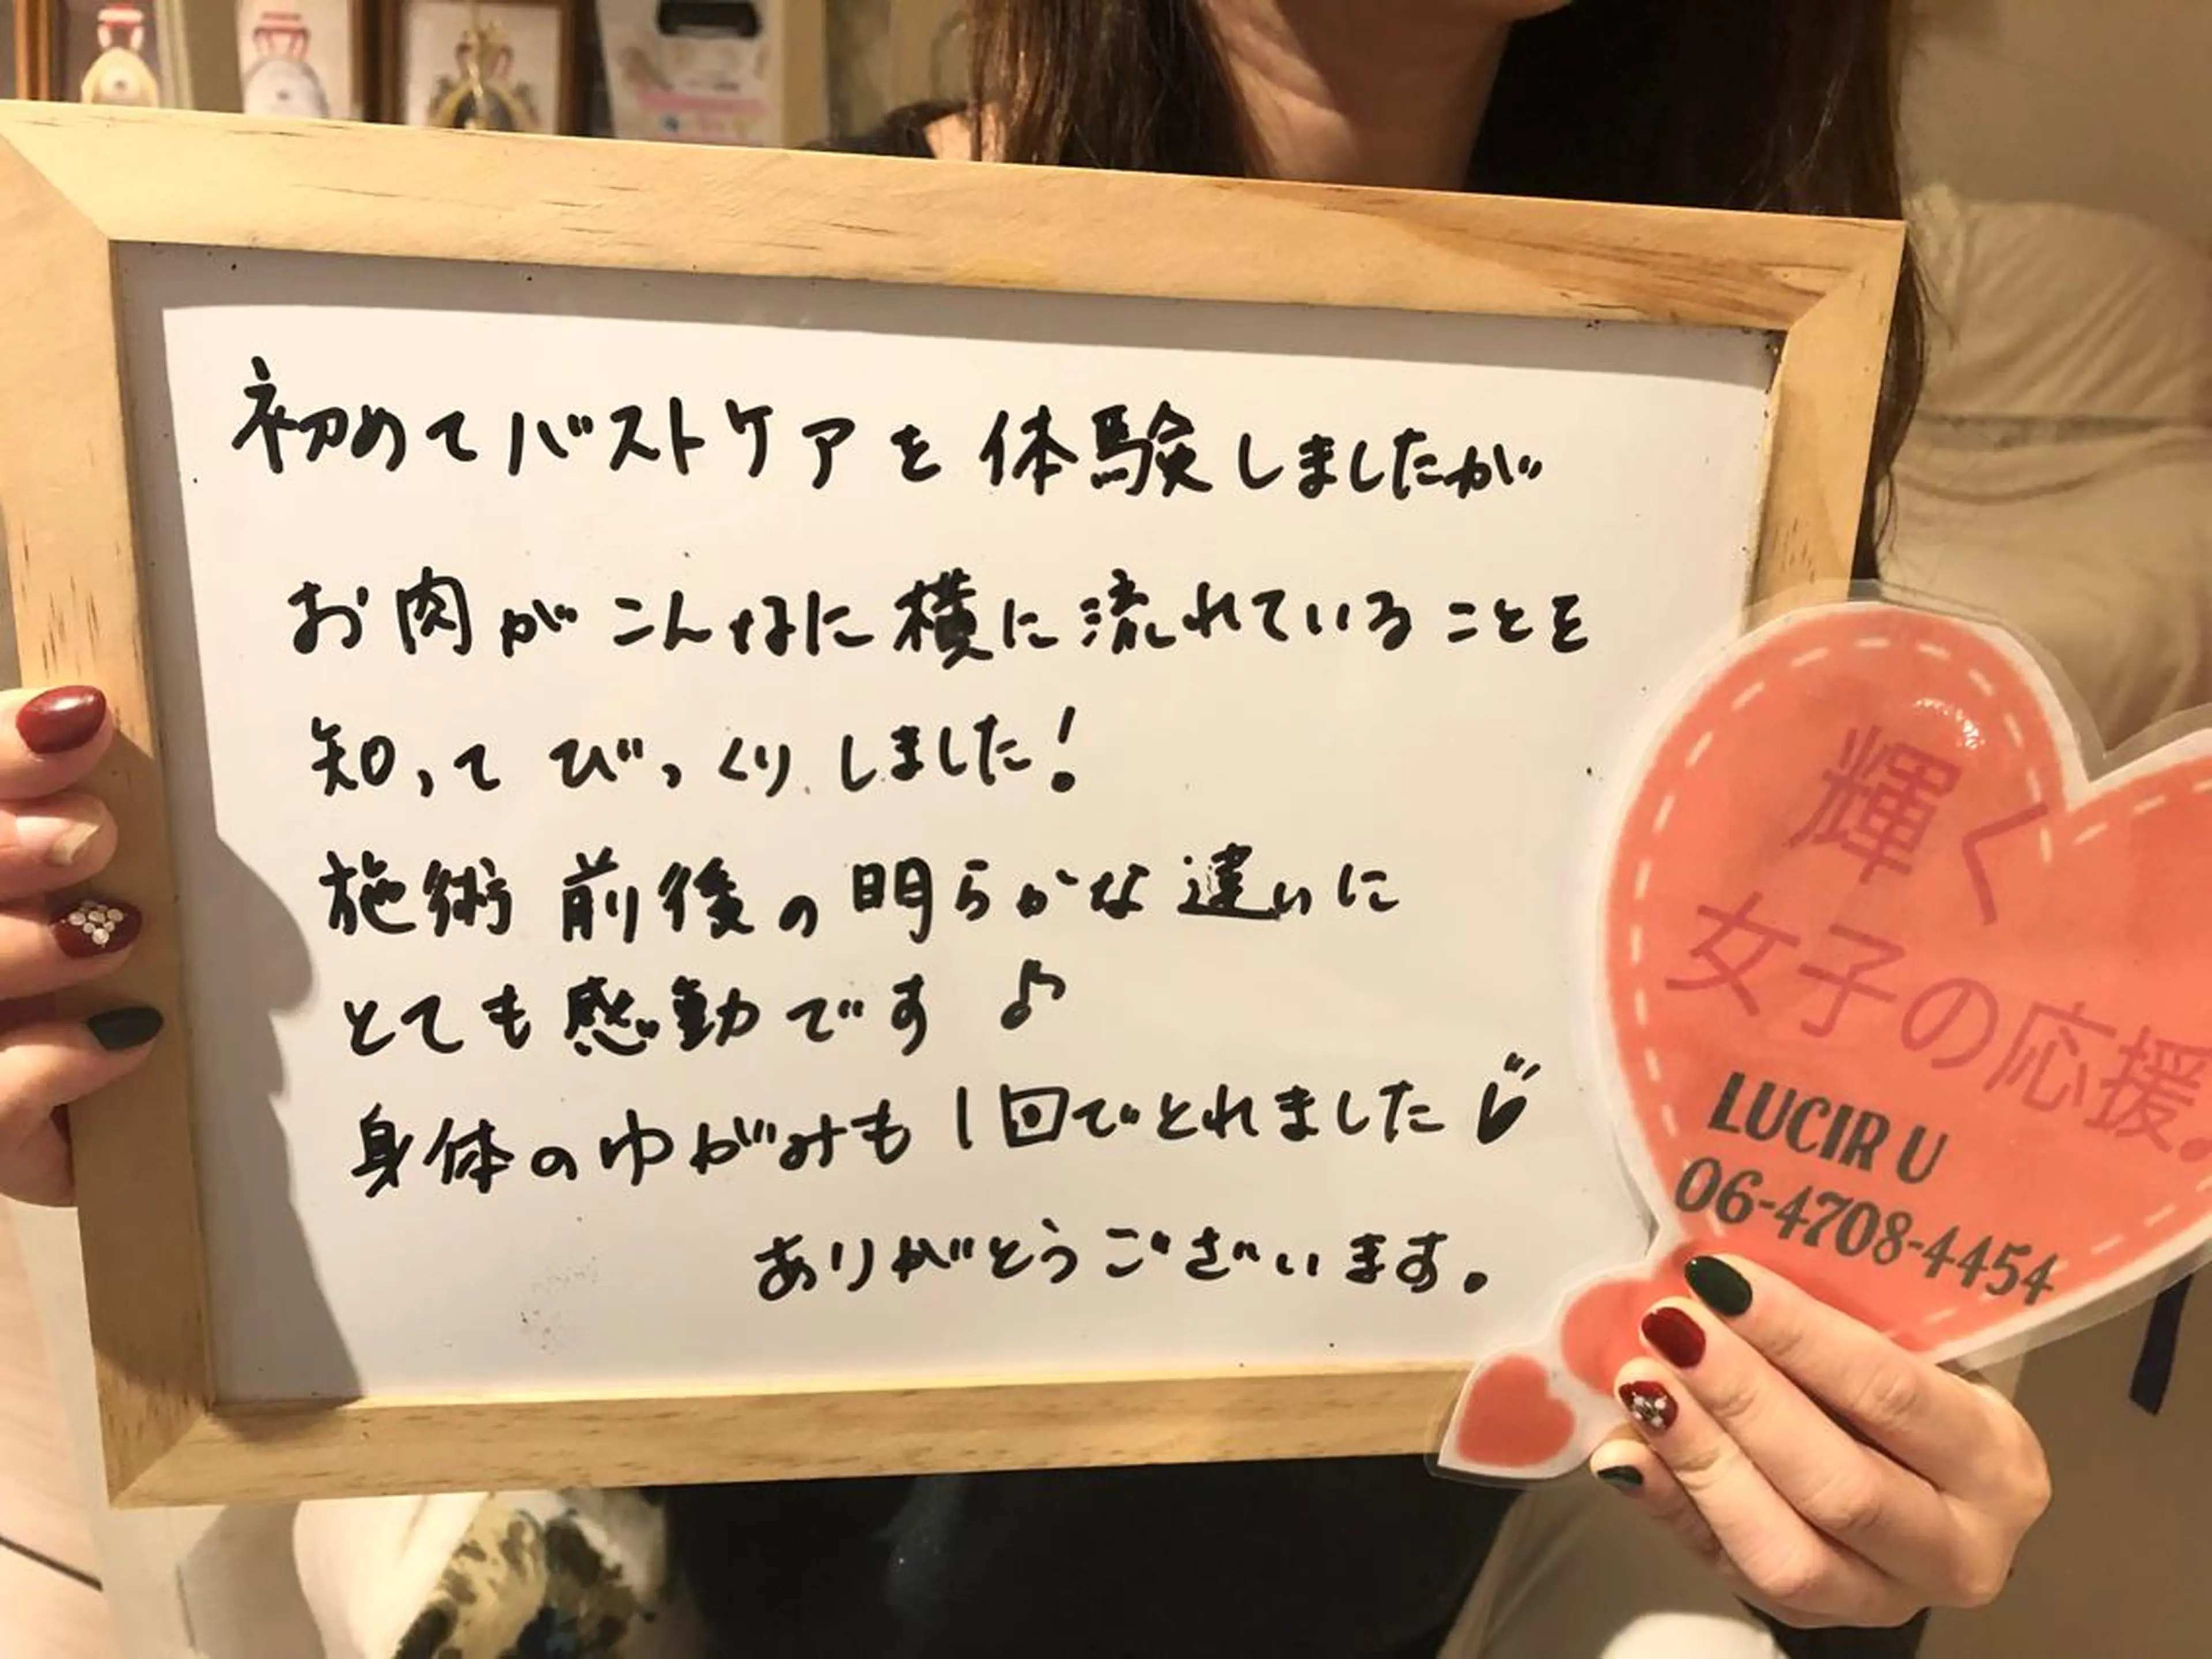 初めてバストケアを体験しましたが
お肉がこんなに横に流れていることを
知ってびっくりしました!
施術前後の明らかな違いに
とても感動です♪
身体のゆがみも1回でとれました
ありがとうございます。
輝く
女子の応援
LUCIR U
06-4708-4454